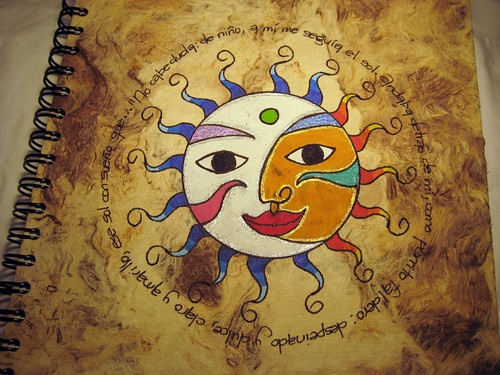 ¡¡No cabe duda: de niño, a mí me seguía el sol. Andaba detras de mí, como perrito faldero: despeinado y dulce, claro y amarillo, ese sol con sueño que...